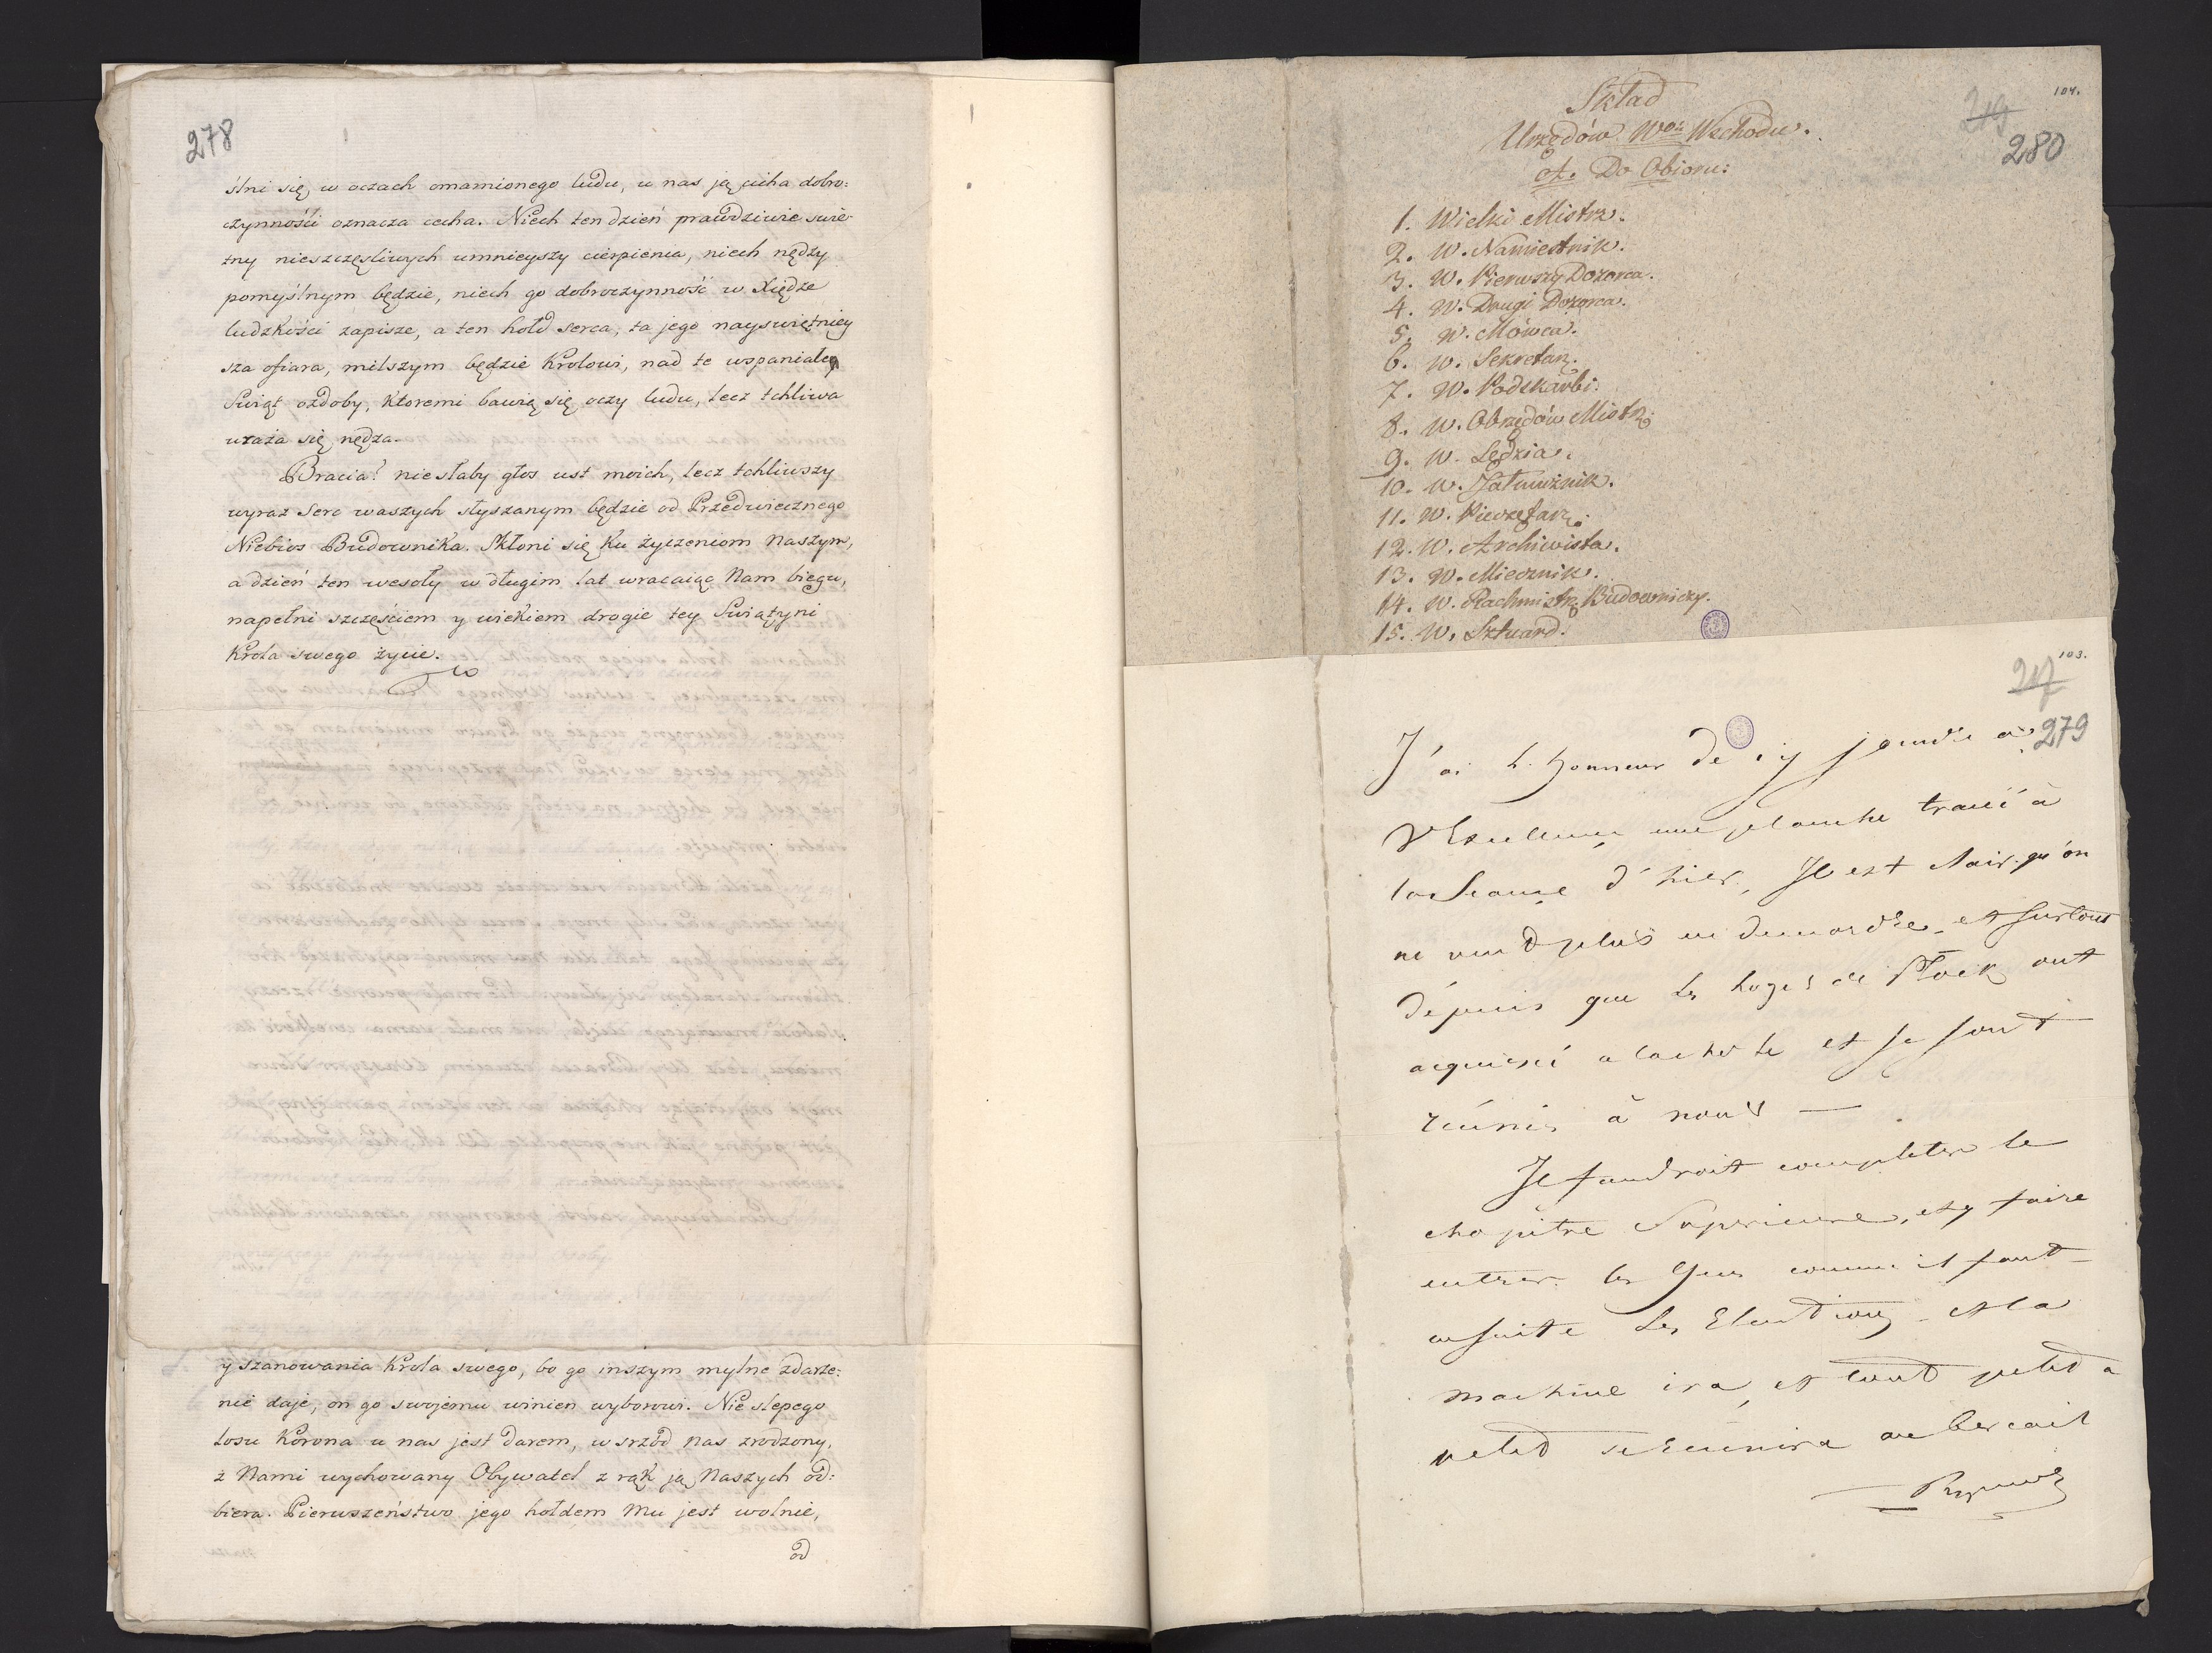 278
ślni się, w oczach omamionego ludu, u nas ją cicha dobro:
czynności oznacza cecha. Niech ten dzień prawdziwie swie-
tny nieszczęsliwych umnieyszy cierpienia, niech nędzy
pomyślnym będzie, niech go dobroczynność w Xiędze
ludzkości zapisze, a ten hołd serca, ta jego nayswiętniey
sza ofiara, milszym będzie Krolowi, nad te wspaniałe
Swiąt ozdoby, ktoremi bawią się oczy ludu, lecz tchliwa
uraża się nędza.
Bracia! nie słaby głos ust moich, lecz tchliwszy
wyraz serc waszych słyszanym będzie od Przedwiecznego
Niebios Budownika. Skłoni się ku życzeniom Naszym,
a dzień ten wesoły w długim lat wracaiąc Nam biegu,
napełni szczęściem y wiekiem drogie tey Swiątyni
Krola swego życie.
y szanowania Krola swego, bo go inszym mylne zdarze:
nie daje, on go swojemu winien wyborowi. Nie slepego
losu Korona u nas jest darem, w srzód nas zrodzony,
z Nami wychowany Obywatel z rąk ją Naszych od:
biera. Pierwszeństwo jego hołdem Mu jest wolnie,
od
104.
219
280
Skład
Urzędów Wo: Wschodu.
Do Obioru:
1. Wielki Mistrz.
2. W. Namiestnik.
3. W. Pierwszy Dozorca.
4. W. Drugi Dozorca.
5. W. Mówca.
6. W. Sekretarz.
7. W. Podskarbi.
8. W. Obrzędów Mistrz.
9. W. Sędzia.
10. W. Jałmużnik.
11. W. Pieczętarz.
12. W. Archiwista.
13. W. Miecznik.
14. W. Rachmistrz Budowniczy.
15. W. Sztuard.
103.
217
279
J'ai l'honneur de cy joindre a
V Excellence une planche tracé à
la Seance d'hier, Il est clair qu'on
ne veud plus en demordre et surtout
dépuis que les loges de Płock ont
acquiescé a l'acte et se sont
reunis à nous —
Il faudroit completer le
chapitre Superieure, et y faire
entrer les gens comme il faut
ensuite les Elections et la
machine ira, et tout petit a
petit se reunira au bercail